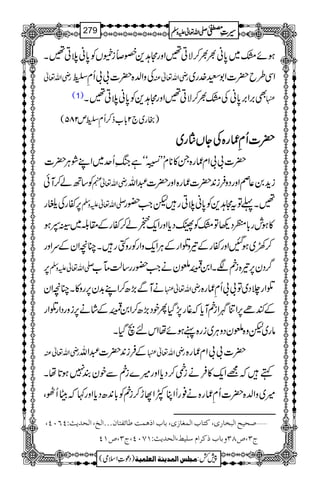 سیرتِ مصطفیٰ صلی اللہ تعالیٰ علیہ وسلم 279
ہوئے مشک میں پانی بھر بھر کر لاتی تھیں اور مجاہدین خصوصاً زخمیوں کو پانی پلاتی تھیں۔
اسی طرح حضرت ابو سعید خدری رضی اللہ تعالیٰ عنہ کی والدہ حضرت بی بی اُمِ سلیط رضی اللہ تعالیٰ
عنہا بھی برابر پانی کی مشک بھر کر لاتی تھیں اور مجاہدین کو پانی پلاتی تھیں۔ (1)
(بخاری ج ۲ باب ذکر اُم سلیط ص ۵۸۲)
حضرت اُمِ عمارہ کی جاں نثاری
حضرت بی بی ام عمارہ جن کا نام ’’نسیبہ‘‘ ہے جنگ اُحد میں اپنے شوہر حضرت
زید بن عاصم اور دو فرزند حضرت عمارہ اور حضرت عبداللہ رضی اللہ تعالیٰ عنہم کو ساتھ لے کر آئی
تھیں۔ پہلے تو یہ مجاہدین کو پانی پلاتی رہیں لیکن جب حضور صلی اللہ تعالیٰ علیہ وسلم پر کفار کی یلغار
کا ہوش ربا منظر دیکھا تو مشک کو پھینک دیا اور ایک خنجر لے کر کفار کے مقابلہ میں سینہ سپر ہو
کر کھڑی ہو گئیں اور کفار کے تیر و تلوار کے ہر ایک وار کو روکتی رہیں۔ چنانچہ ان کے سر اور
گردن پر تیرہ زخم لگے۔ ابن قمیئہ ملعون نے جب حضور رسالت مآب صلی اللہ تعالیٰ علیہ وسلم پر
تلوار چلا دی تو بی بی اُم عمارہ رضی اللہ تعالیٰ عنہا نے آگے بڑھ کر اپنے بدن پر روکا۔ چنانچہ ان
کے کندھے پر اتنا گہرا زخم آیا کہ غار پڑ گیا پھر خود بڑھ کر ابن قمیئہ کے شانے پر زور دار تلوار
ماری لیکن وہ ملعون دوہری زرہ پہنے ہوئے تھا اس لئے بچ گیا۔
حضرت بی بی ام عمارہ رضی اللہ تعالیٰ عنہا کے فرزند حضرت عبداللہ رضی اللہ تعالیٰ عنہ
کہتے ہیں کہ مجھے ایک کافر نے زخمی کر دیا اور میرے زخم سے خون بند نہیں ہوتا تھا۔
میری والدہ حضرت اُم عمارہ نے فوراً اپنا کپڑا پھاڑ کر زخم کو باندھ دیا اور کہا کہ بیٹا اُٹھو،
صحیح البخاری، کتاب المغازی، باب اذھمت طائفتان...الخ، الحدیث:٤٠٦٤،
ج۳، ص۳۸ وباب ذکر ام سلیط، الحدیث:٤٠٧١، ج۳، ص٤١
پیش کش: مجلس المدینۃ العلمیۃ (دعوتِ اسلامی)